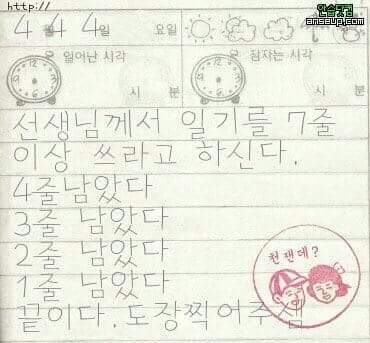 http://
안습닷컴
anseup.com
4 월 4 4 일 요일
일어난 시각 잠자는 시각
시 분 시 분
선생님께서 일기를 7줄
이상 쓰라고 하신다.
4줄남았다
3줄 남았다
2줄 남았다
1줄 남았다
끝이다. 도장찍어주셈
천잰데?